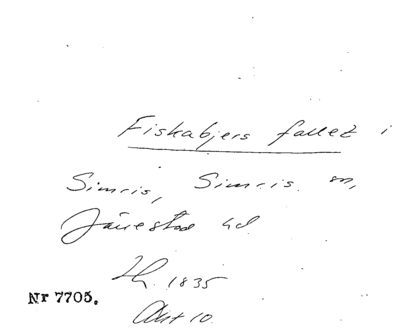 Fiskabjers fallet i
Simris, Simris. sn,
Järrestad hd.
1835
Nr 7705.
Akt 10.